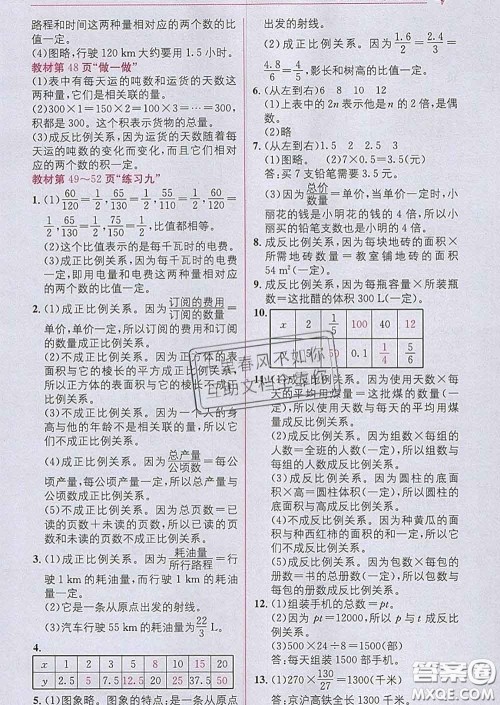 路程和时间这两种量相对应的两个数的比
值一定。
(4)图略，行驶 120 km大约要用 1.5 小时。
教材第 48 页“做一做”
(1)表中有每天运的吨数和运货的天数这
两种量，它们是相关联的量。
(2)300×1=150×2=100×3=…=300，
积都是 300。这个积表示货物的总量。
(3)成反比例关系，因为运货的天数随着每
天运的吨数的变化而变化，而且它们相对
应的两个数的积一定。
教材第 49～52 页“练习九”
1. (1) 60/120=1/2, 65/130=1/2, 75/150=1/2, 55/110=
1/2, 55/110=1/2, 60/120=1/2, 比值都相等。
(2)这个比值表示的是每千瓦时的电费。
(3)成正比例关系，因为每千瓦时的电费一
定，即用电量和电费这两种量相对应的两
个数的比值一定。
2. (1)成正比例关系。因为订阅的费用/订阅的数量=
单价，单价一定，所以订阅的费用和订阅
的数量成正比例关系。
(2)不成正比例关系。因为正方体的表
面积与它的棱长的平方成正比例关系，所
以正方体的表面积与它的棱长不成正比
例关系。
(3)不成正比例关系。因为一个人的身
高与他的年龄不是两种相关联的量。
(4)成正比例关系。因为总产量/公顷数=每公
顷产量，每公顷产量一定，所以总产量与
公顷数成正比例关系。
(5)不成正比例关系。因为总页数=已
读的页数+未读的页数，所以已读的页数
和未读的页数不成正比例关系。
3. (1)成正比例关系，因为耗油量/所行路程=行
驶 1 km的耗油量，而行驶 1 km 的耗油
量一定。
(2)它是一条从原点出发的射线。
(3)汽车行驶 55 km的耗油量是22/3 L。
4.
x 1 2 3 5 6 8 20
y 2.5 5 7.5 12.5 15 20 50
5. (1)图象略。图象的特点：是一条从原点
出发的射线。
(2)成正比例关系。因为1.6/2=2.4/3=
4.8/6=…=4/5，影长和树高的比值一定。
6. (从左到右)6 8 10 12
(1)上表中的 2n 表示他是 n 的 2 倍，是偶
数。
(2)略
7. (从左到右)1.5 2 2.5 3
(1)图略。(2)7×0.5=3.5(元)
答：买 7 支铅笔需要 3.5 元。
(3)因为总价/数量=单价，当单价一定时，小
丽花的钱是小明花的钱的 4 倍，所以小丽
买的铅笔支数也是小明的 4 倍。
8. 成反比例关系，因为每块地砖的面积×
所需地砖数量=教室铺地砖的面积
54 m²(一定)。
9. 成反比例关系，因为每瓶容量×所装瓶
数=这批醋的体积 300 L(一定)。
10.
x 2 1/5 100 40 12
50 0.1 1/4 5/6
11. (1)成反比例关系。因为使用天数×每
天的平均用煤量=这批煤的数量(一定)，
所以使用天数与每天的平均用煤
量成反比例关系。
(2)成反比例关系。因为组数×每组的
人数=全班的人数(一定)，所以组数与
每组的人数成反比例关系。
(3)成反比例关系。因为圆柱的底面
积×高=圆柱体积(一定)，所以圆柱的
底面积与高成反比例关系。
(4)不成反比例关系。因为种黄瓜的面
积与种西红柿的面积的和一定，而积不
一定。
(5)成反比例关系。因为包数×每包的
册数=书的总册数(一定)，所以包数与
每包的册数成反比例关系。
12. (1)组装手机的总数=pt。
(2)因为 pt=12000，所以 p 与 t 成反比
例关系。
(3)500×24÷8=1500(部)
答：每天组装 1500 部手机。
13. (1)270×130/27=1300(千米)
答：京沪高铁全长 1300 千米。
春风不如你
互助文档
答案圈
MXQE.COM